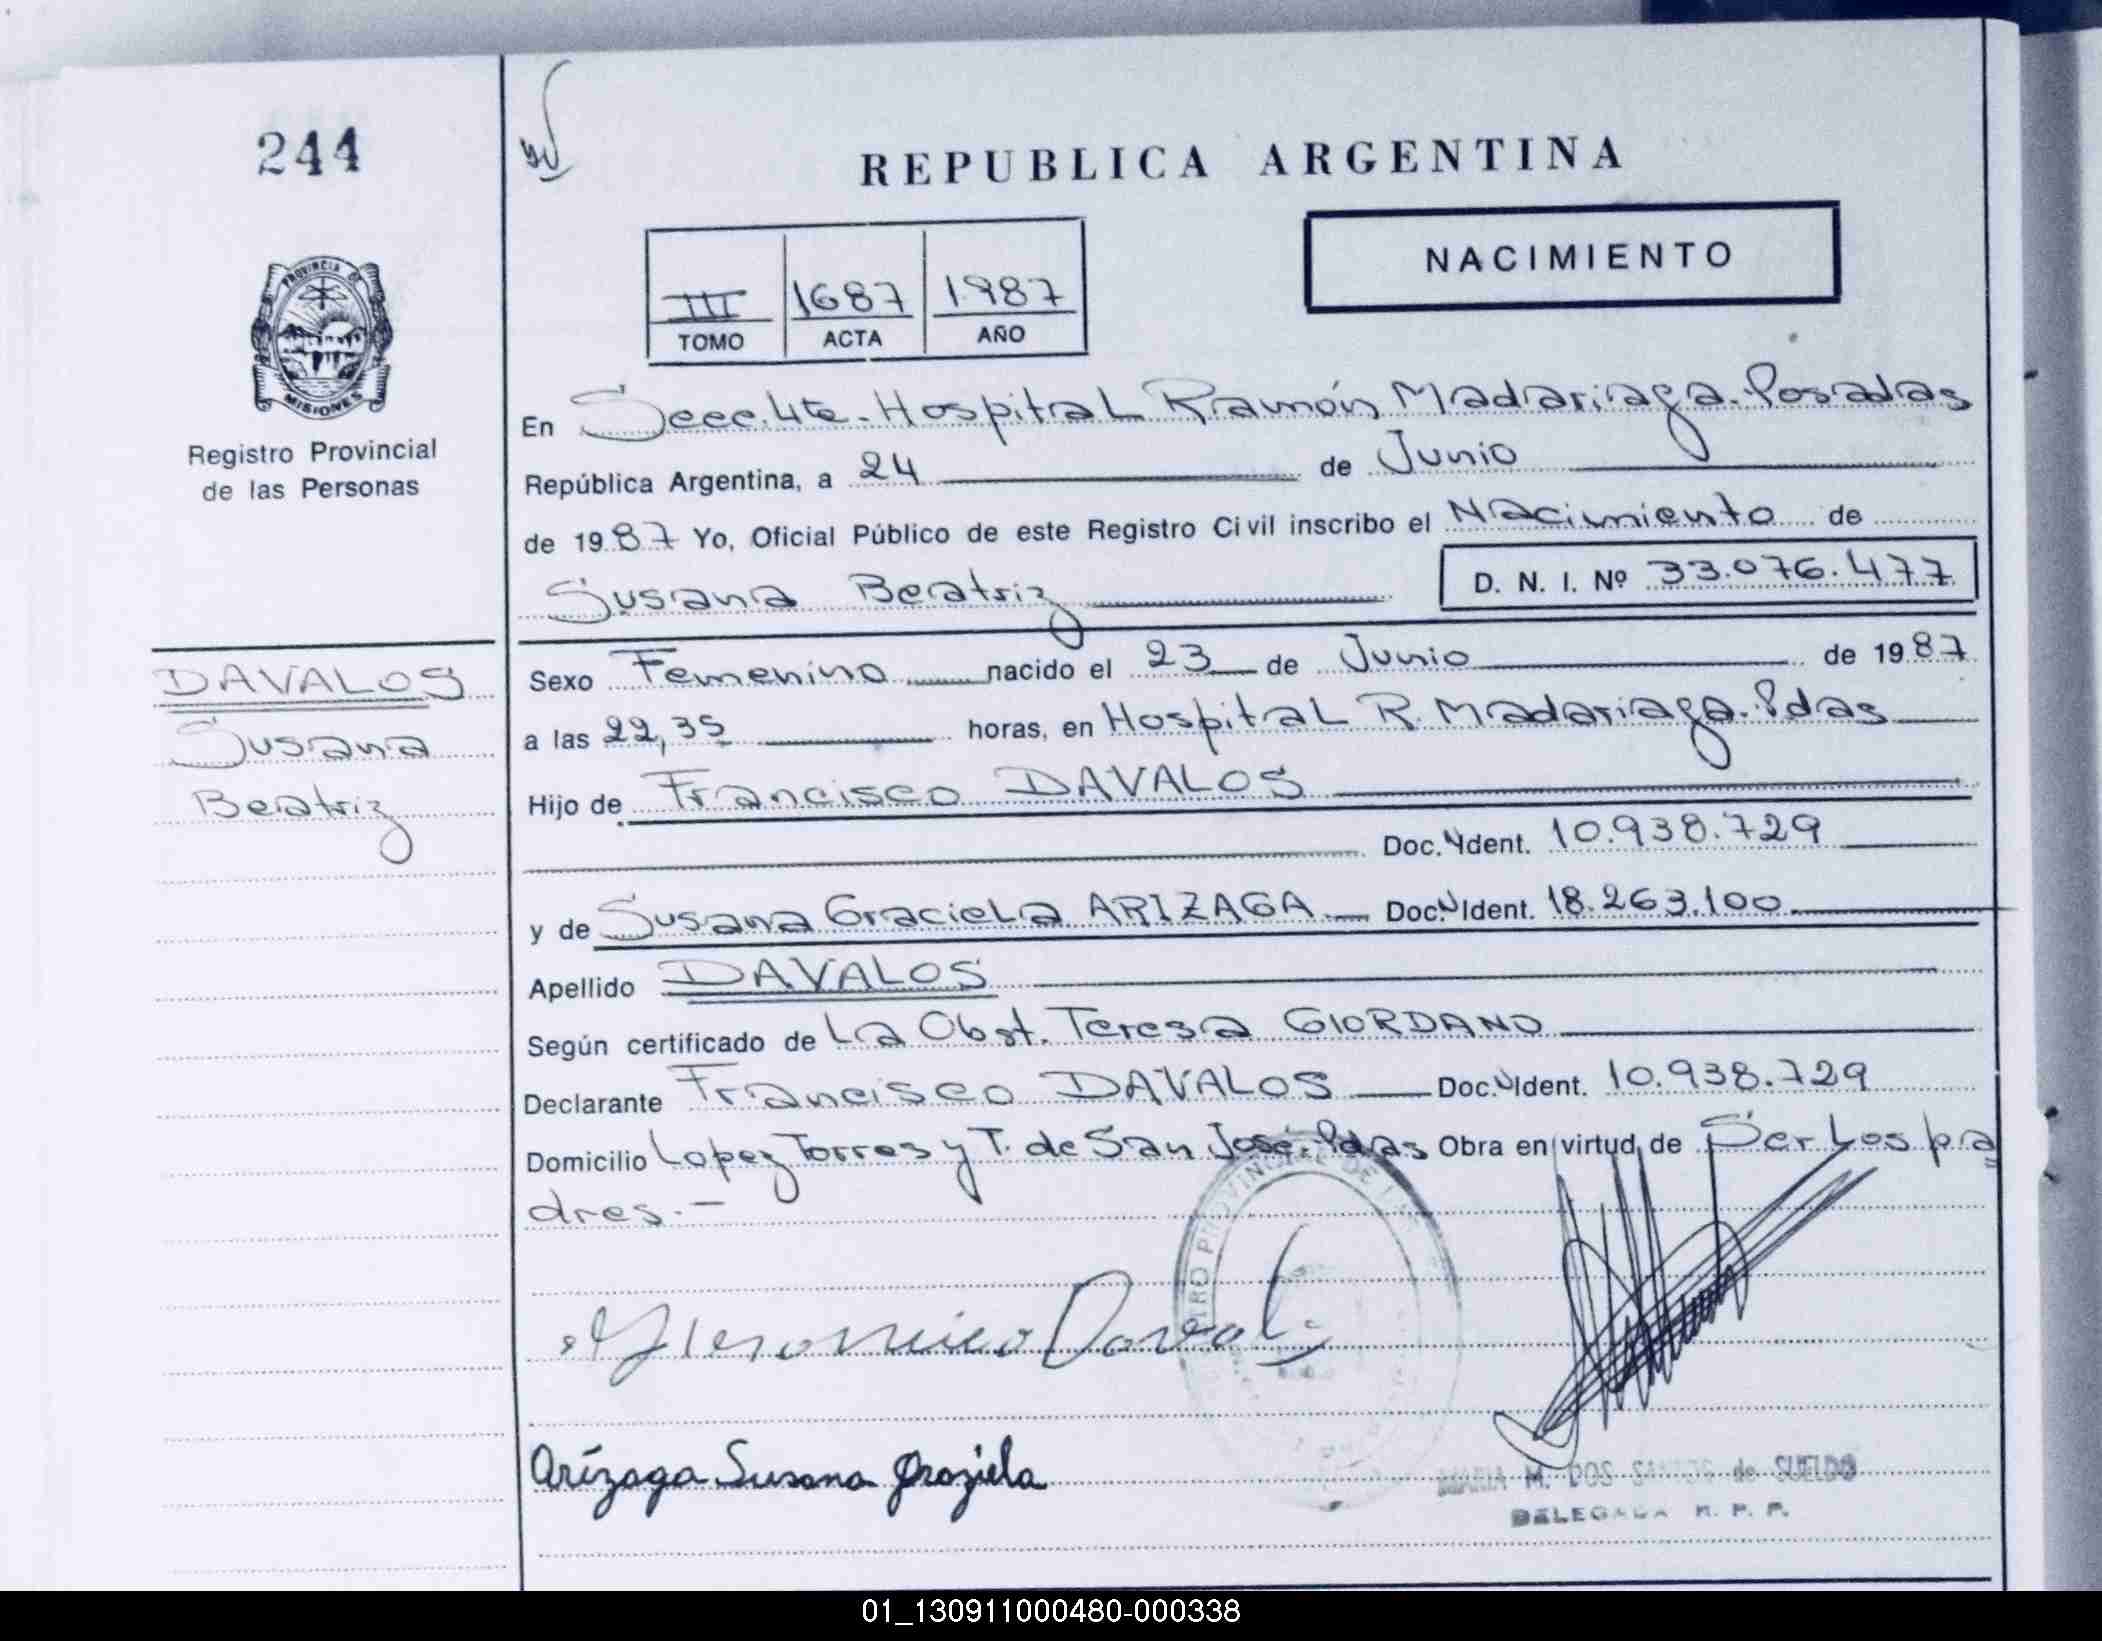 244
REPUBLICA ARGENTINA
NACIMIENTO
III 1687 1987
TOMO ACTA AÑO
PROVINCIA DE
MISIONES
Registro Provincial
de las Personas
En Secc. 4ta - Hospital Ramón Madariaga - Posadas
República Argentina, a 24 de Junio
de 1987 Yo, Oficial Público de este Registro Civil inscribo el Nacimiento de
Susana Beatriz D. N. I. Nº 33.076.477
DAVALOS
Susana
Beatriz
Sexo Femenino nacido el 23 de Junio de 1987
a las 22,35 horas, en Hospital R. Madariaga - Pdas
Hijo de Francisco DAVALOS
Doc. Ident. 10.938.729
y de Susana Graciela ARIZAGA Doc. Ident. 18.263.100
Apellido DAVALOS
Según certificado de La Obst. Teresa GIORDANO
Declarante Francisco DAVALOS Doc. Ident. 10.938.729
Domicilio Lopez Torres y T. de San José - Pdas Obra en virtud de Ser Los pa
dres. -
PROVINCIAL DE
Arízaga Susana Graziela
M. DOS de SUELDO
DELEGADA R. P. P.
01_130911000480-000338